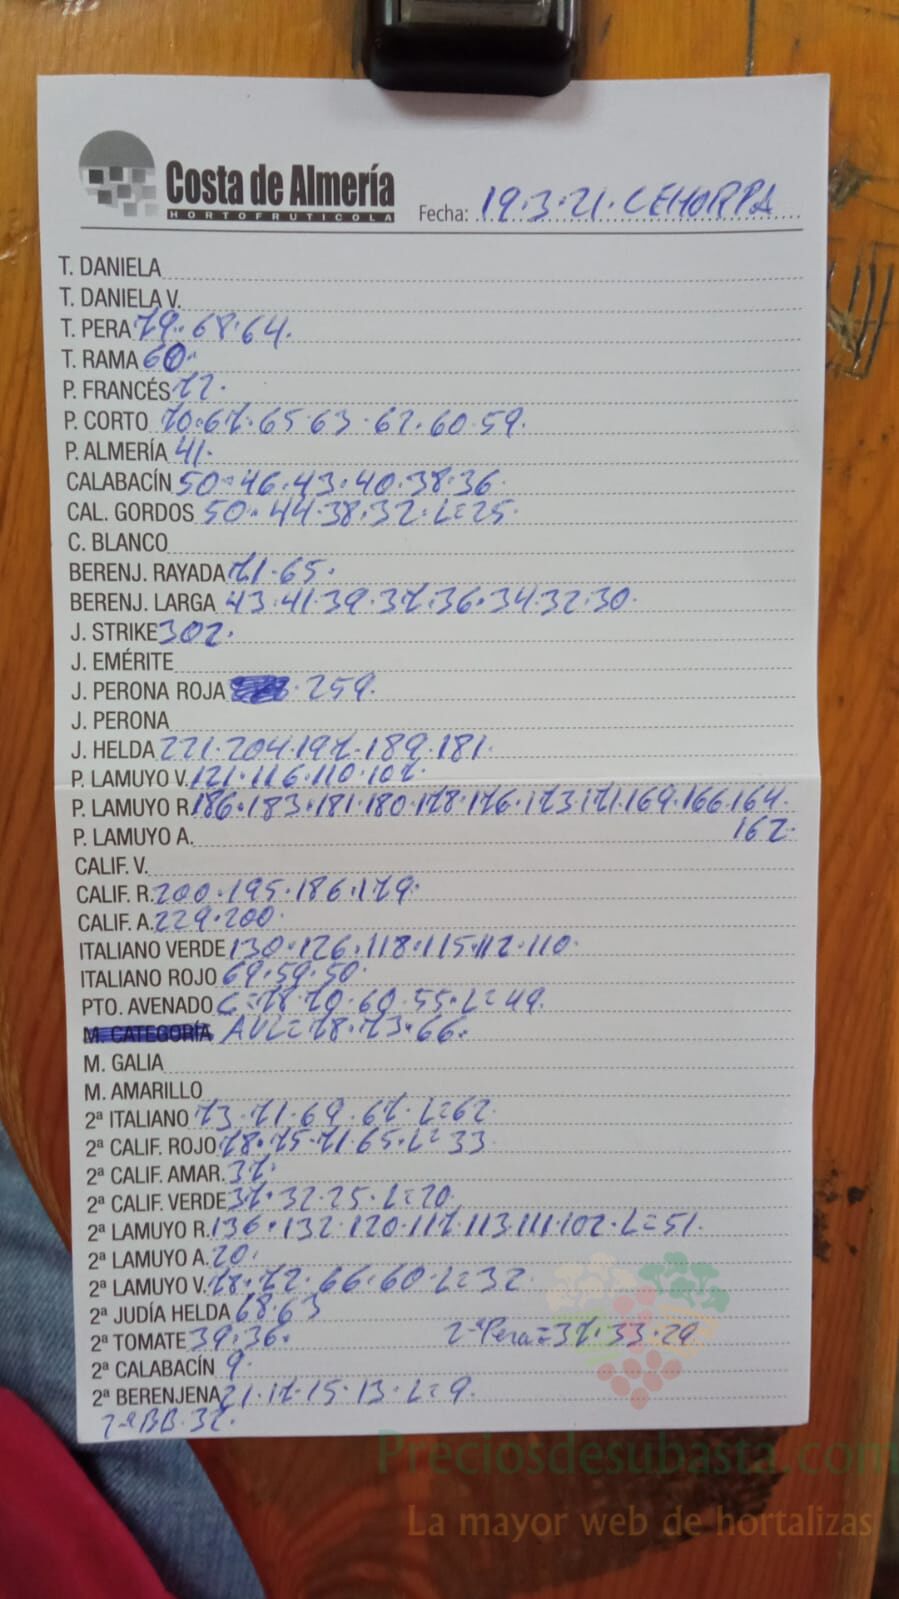 Costa de Almería
HORTOFRUTICOLA
Fecha: 19.3.21. CEHORPA
T. DANIELA
T. DANIELA V.
T. PERA 79. 68. 64.
T. RAMA 60.
P. FRANCÉS 72.
P. CORTO 70. 67. 65. 63. 62. 60. 59.
P. ALMERÍA 41.
CALABACÍN 50. 46. 43. 40. 38. 36.
CAL. GORDOS 50. 44. 38. 32. L=25.
C. BLANCO
BERENJ. RAYADA 71. 65.
BERENJ. LARGA 43. 41. 39. 37. 36. 34. 32. 30.
J. STRIKE 302.
J. EMÉRITE
J. PERONA ROJA 259.
J. PERONA
J. HELDA 221. 204. 197. 189. 181.
P. LAMUYO V. 121. 116. 110. 107.
P. LAMUYO R. 186. 183. 181. 180. 178. 176. 173. 171. 169. 166. 164.
P. LAMUYO A. 162.
CALIF. V.
CALIF. R. 200. 195. 186. 179.
CALIF. A. 229. 200.
ITALIANO VERDE 130. 126. 118. 115. 112. 110.
ITALIANO ROJO 69. 59. 50.
PTO. AVENADO C=78. 70. 60. 55. L=49.
M. CATEGORÍA AVL=78. 73. 66.
M. GALIA
M. AMARILLO
2ª ITALIANO 73. 71. 69. 67. L=62.
2ª CALIF. ROJO 78. 75. 71. 65. L=33
2ª CALIF. AMAR. 37.
2ª CALIF. VERDE 37. 32. 25. L=20.
2ª LAMUYO R. 136. 132. 120. 117. 113. 111. 102. L=51.
2ª LAMUYO A. 20.
2ª LAMUYO V. 78. 72. 66. 60. L=32.
2ª JUDÍA HELDA 68. 63
2ª TOMATE 39. 36. 2ª Pera=37. 33. 29.
2ª CALABACÍN 9.
2ª BERENJENA 21. 17. 15. 13. L=9.
2ª BB. 32.
Preciosdesubasta.com
La mayor web de hortalizas